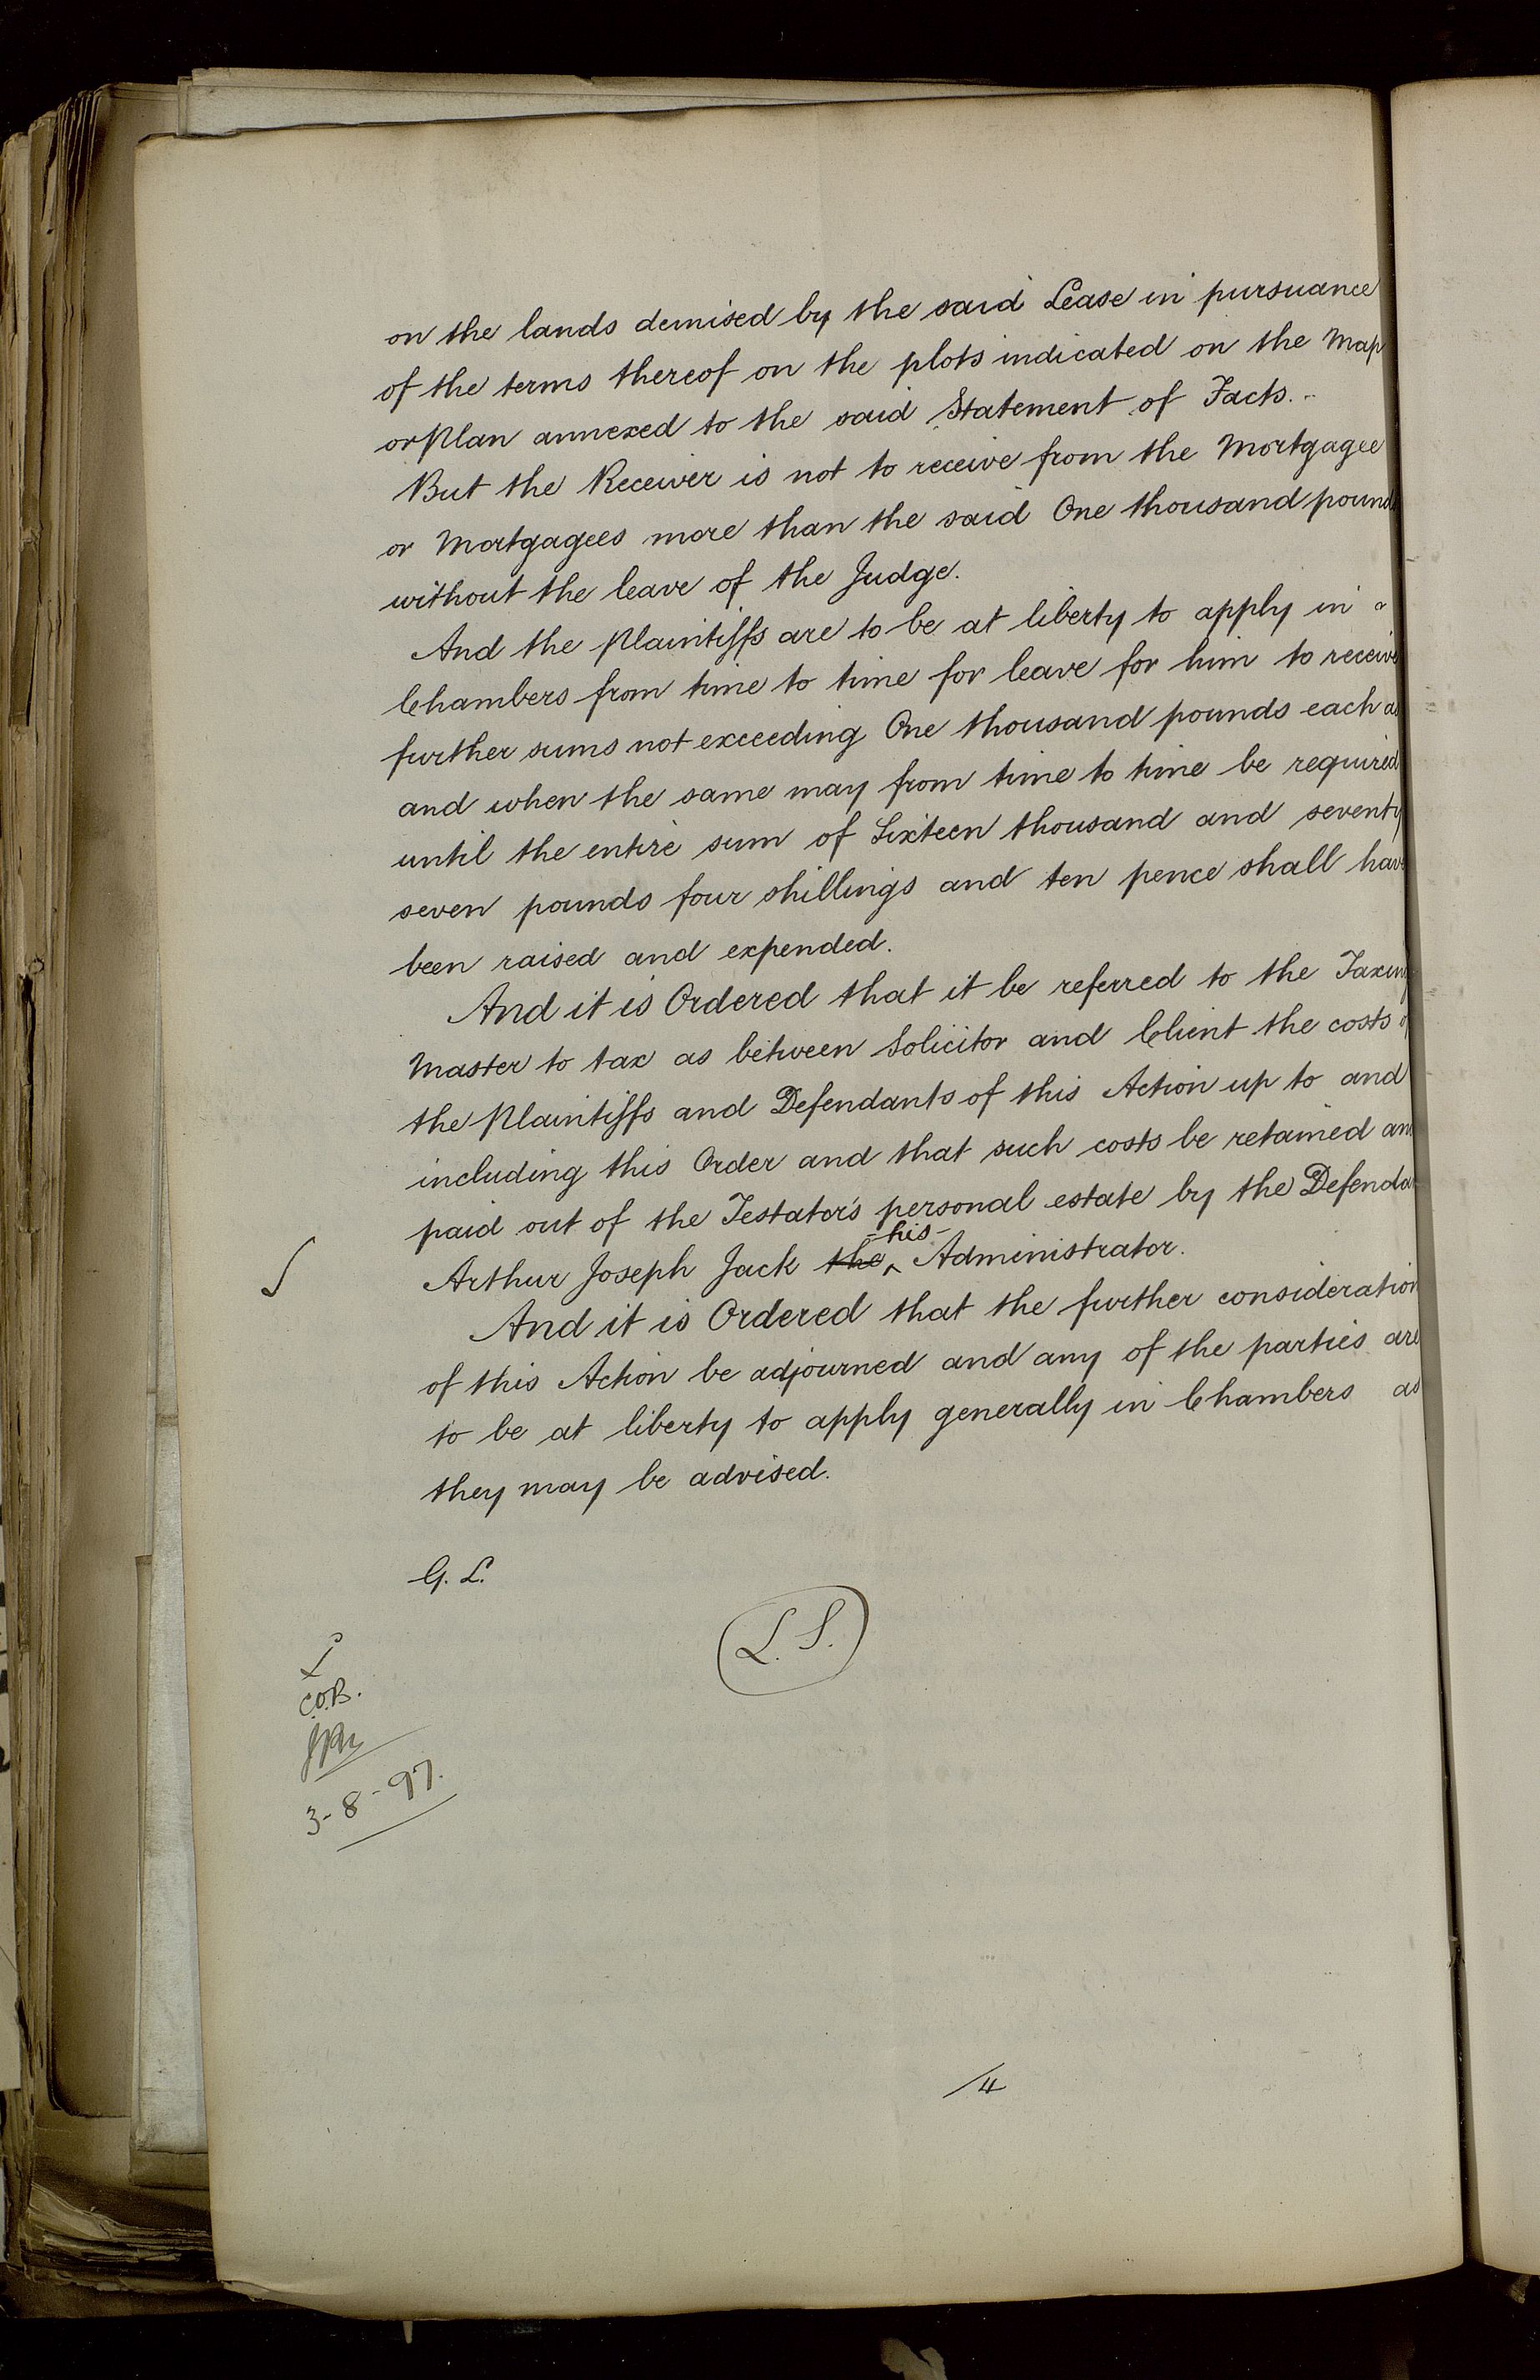 on the lands demised by the said Lease in pursuance
of the terms thereof on the plots indicated on the Map
or Plan annexed to the said Statement of Facts.
But the Receiver is not to receive from the Mortgagee
or Mortgagees more than the said One thousand pound
without the leave of the Judge.
And the Plaintiffs are to be at liberty to apply in
Chambers from time to time for leave for him to receive
further sums not exceeding One thousand pounds each as
and when the same may from time to time be required
until the entire sum of Sixteen thousand and seventy
seven pounds four shillings and ten pence shall have
been raised and expended.
And it is Ordered that it be referred to the Taxing
Master to tax as between Solicitor and Client the costs of
the Plaintiffs and Defendants of this Action up to and
including this Order and that such costs be retained and
paid out of the Testator's personal estate by the Defendant
-his-
Arthur Joseph Jack the Administrator.
And it is Ordered that the further consideration
of this Action be adjourned and any of the parties are
to be at liberty to apply generally in Chambers as
they may be advised.
G. L.
L. S.
C.O.B.
3-8-97.
/4